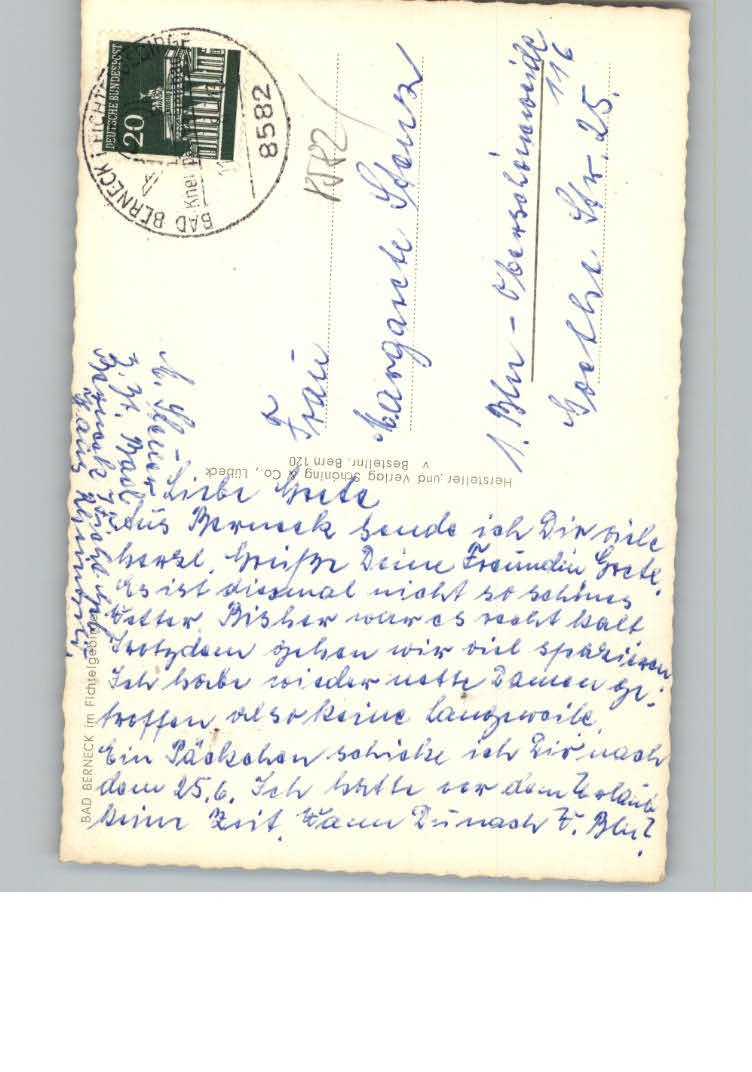 Liebe Grete
Aus Berneck sende ich Dir viele
herzl. Grüße Deine Freundin Grete.
Es ist diesmal nicht so schönes
Wetter. Bisher war es recht kalt
Trotzdem gehen wir viel spazieren
Ich habe wieder nette Damen ge-
troffen also keine Langeweile.
Ein Päckchen schicke ich Dir nach
dem 25.6. Ich hatte vor dem Urlaub
keine Zeit. Wann Du nach W. Bln?
z. Zt. Bad
Berneck
Haus
BAD BERNECK im Fichtelgebirge
Hersteller und Verlag Schöning & Co., Lübeck
v Bestellnr. Bern 120
DEUTSCHE BUNDESPOST
20
BAD BERNECK I. FICHTELGEBIRGE
8582
Frau
Margarete
1. Bln - Oberschöneweide
116
Goethe Str. 25.